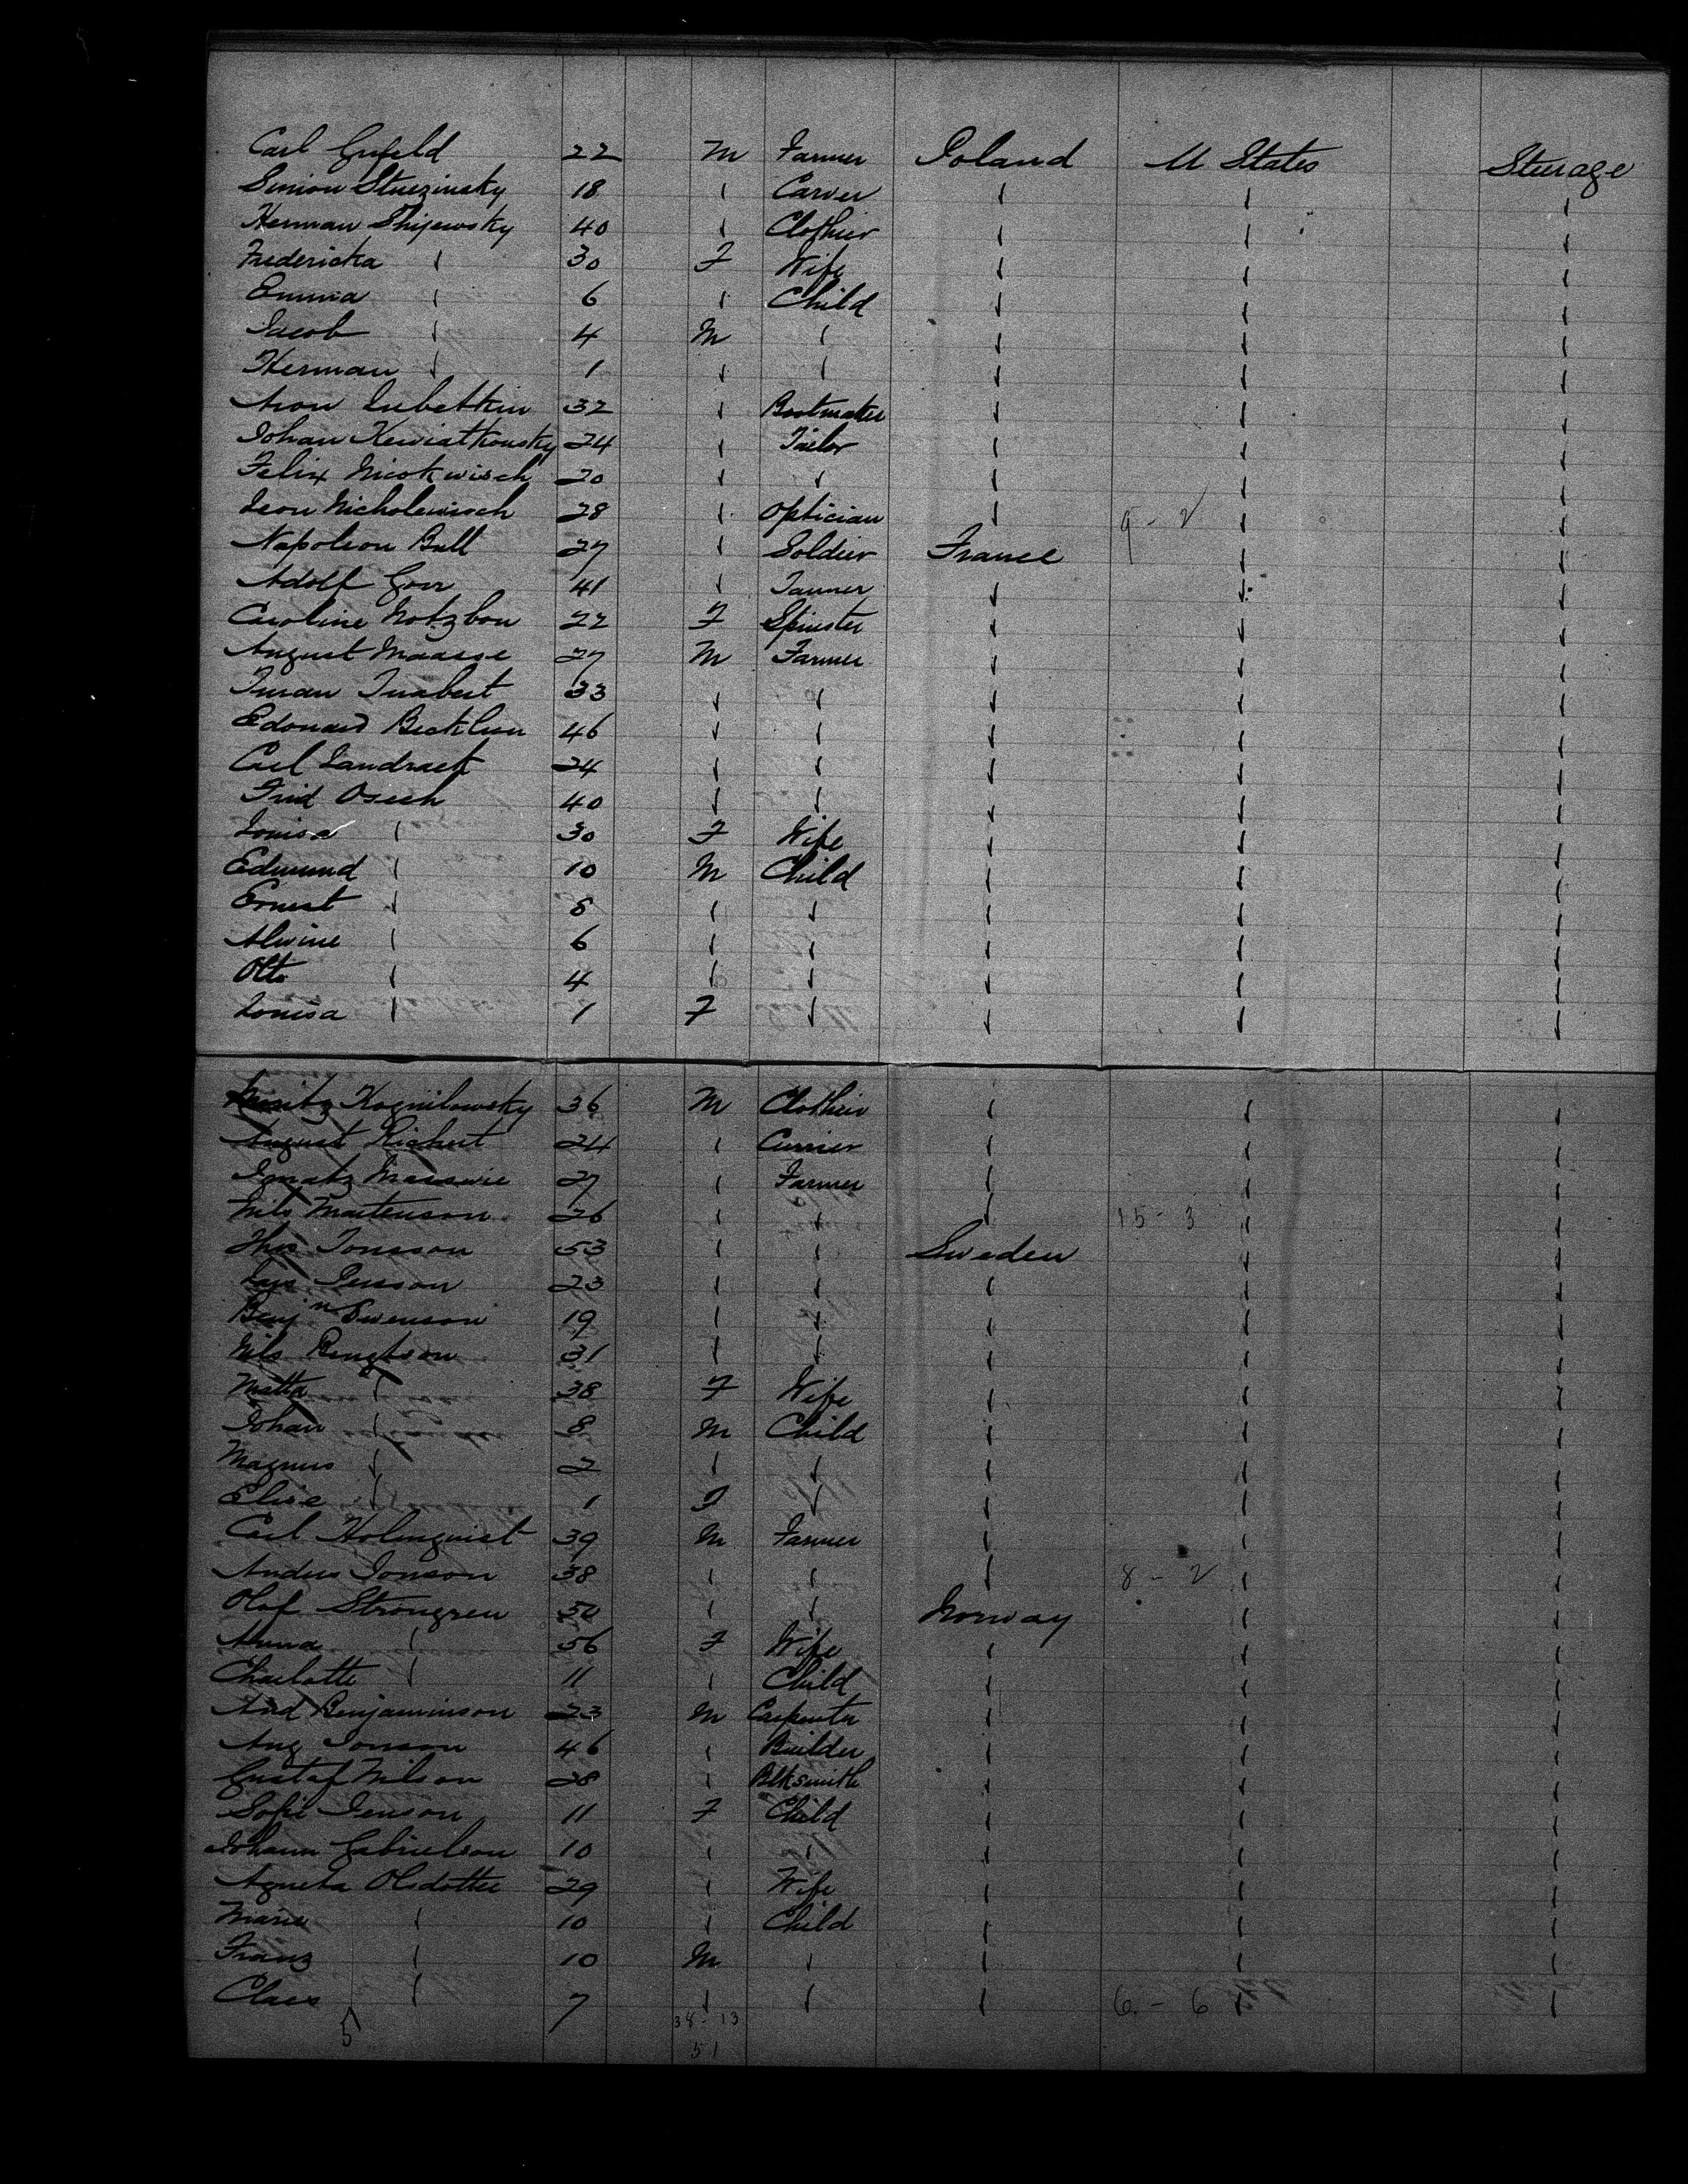 Carl Gufeld 22 M Farmer Poland U States Steerage
Simion Stuezinsky 18 " Carver " " "
Herman Shijewsky 40 " Clothier " " "
Fredericka " 30 F Wife " " "
Emma " 6 " Child " " "
Jacob " 4 M " " " "
Herman " 1 " " " " "
Aron Lubetkin 32 " Bootmaker " " "
Johan Kewiatkowsky 24 " Tailor " " "
Felix Nicokwisch 20 " " " " "
Leon Nicholewisch 28 " Optician " 9 - 2 " "
Napoleon Bull 27 " Soldier France " "
Adolf Gorr 41 " Tanner " " "
Caroline Notzbon 22 F Spinster " " "
August Maasse 27 M Farmer " " "
33 " " " " "
Edouard 46 " " " " "
Carl Landrack 24 " " " " "
Frid Osech 40 " " " " "
Louisa " 30 F Wife " " "
Edmund " 10 M Child " " "
Ernest " 8 " " " " "
Alwine " 6 " " " " "
Otto " 4 " " " " "
Louisa " 1 F " " " "
Moritz Kognilowsky 36 M Clothier " " "
August Richert 24 " Currier " " "
Ignatz Massavie 27 " Farmer " " "
Nils Martenson 26 " " " 15 - 3 " "
Jonsson 53 " " Sweden " "
Lars Persson 23 " " " " "
Benjn Swenson 19 " " " " "
Nils Bengtson 31 " " " " "
Matta " 38 F Wife " " "
Johan " 8 M Child " " "
Magnus " 2 " " " " "
Elise " 1 F " " " "
Carl Holmquist 39 M Farmer " " "
Anders Jonson 38 " " " 8 - 2 " "
Olof Strongren 50 " " Norway " "
Anna " 56 F Wife " " "
Charlotte " 11 " Child " " "
And Benjaminson 23 M Carpenter " " "
Aug Jonson 46 " Builder " " "
Gustaf Nilson 28 " Blksmith " " "
Sofie Jenson 11 F Child " " "
Johann Gabrielson 10 " " " " "
Agneta Olsdotter 29 " Wife " " "
Marie " 10 " Child " " "
Franz " 10 M " " " "
Claes " 7 " " " 6 - 6 " "
5 38 - 13
51